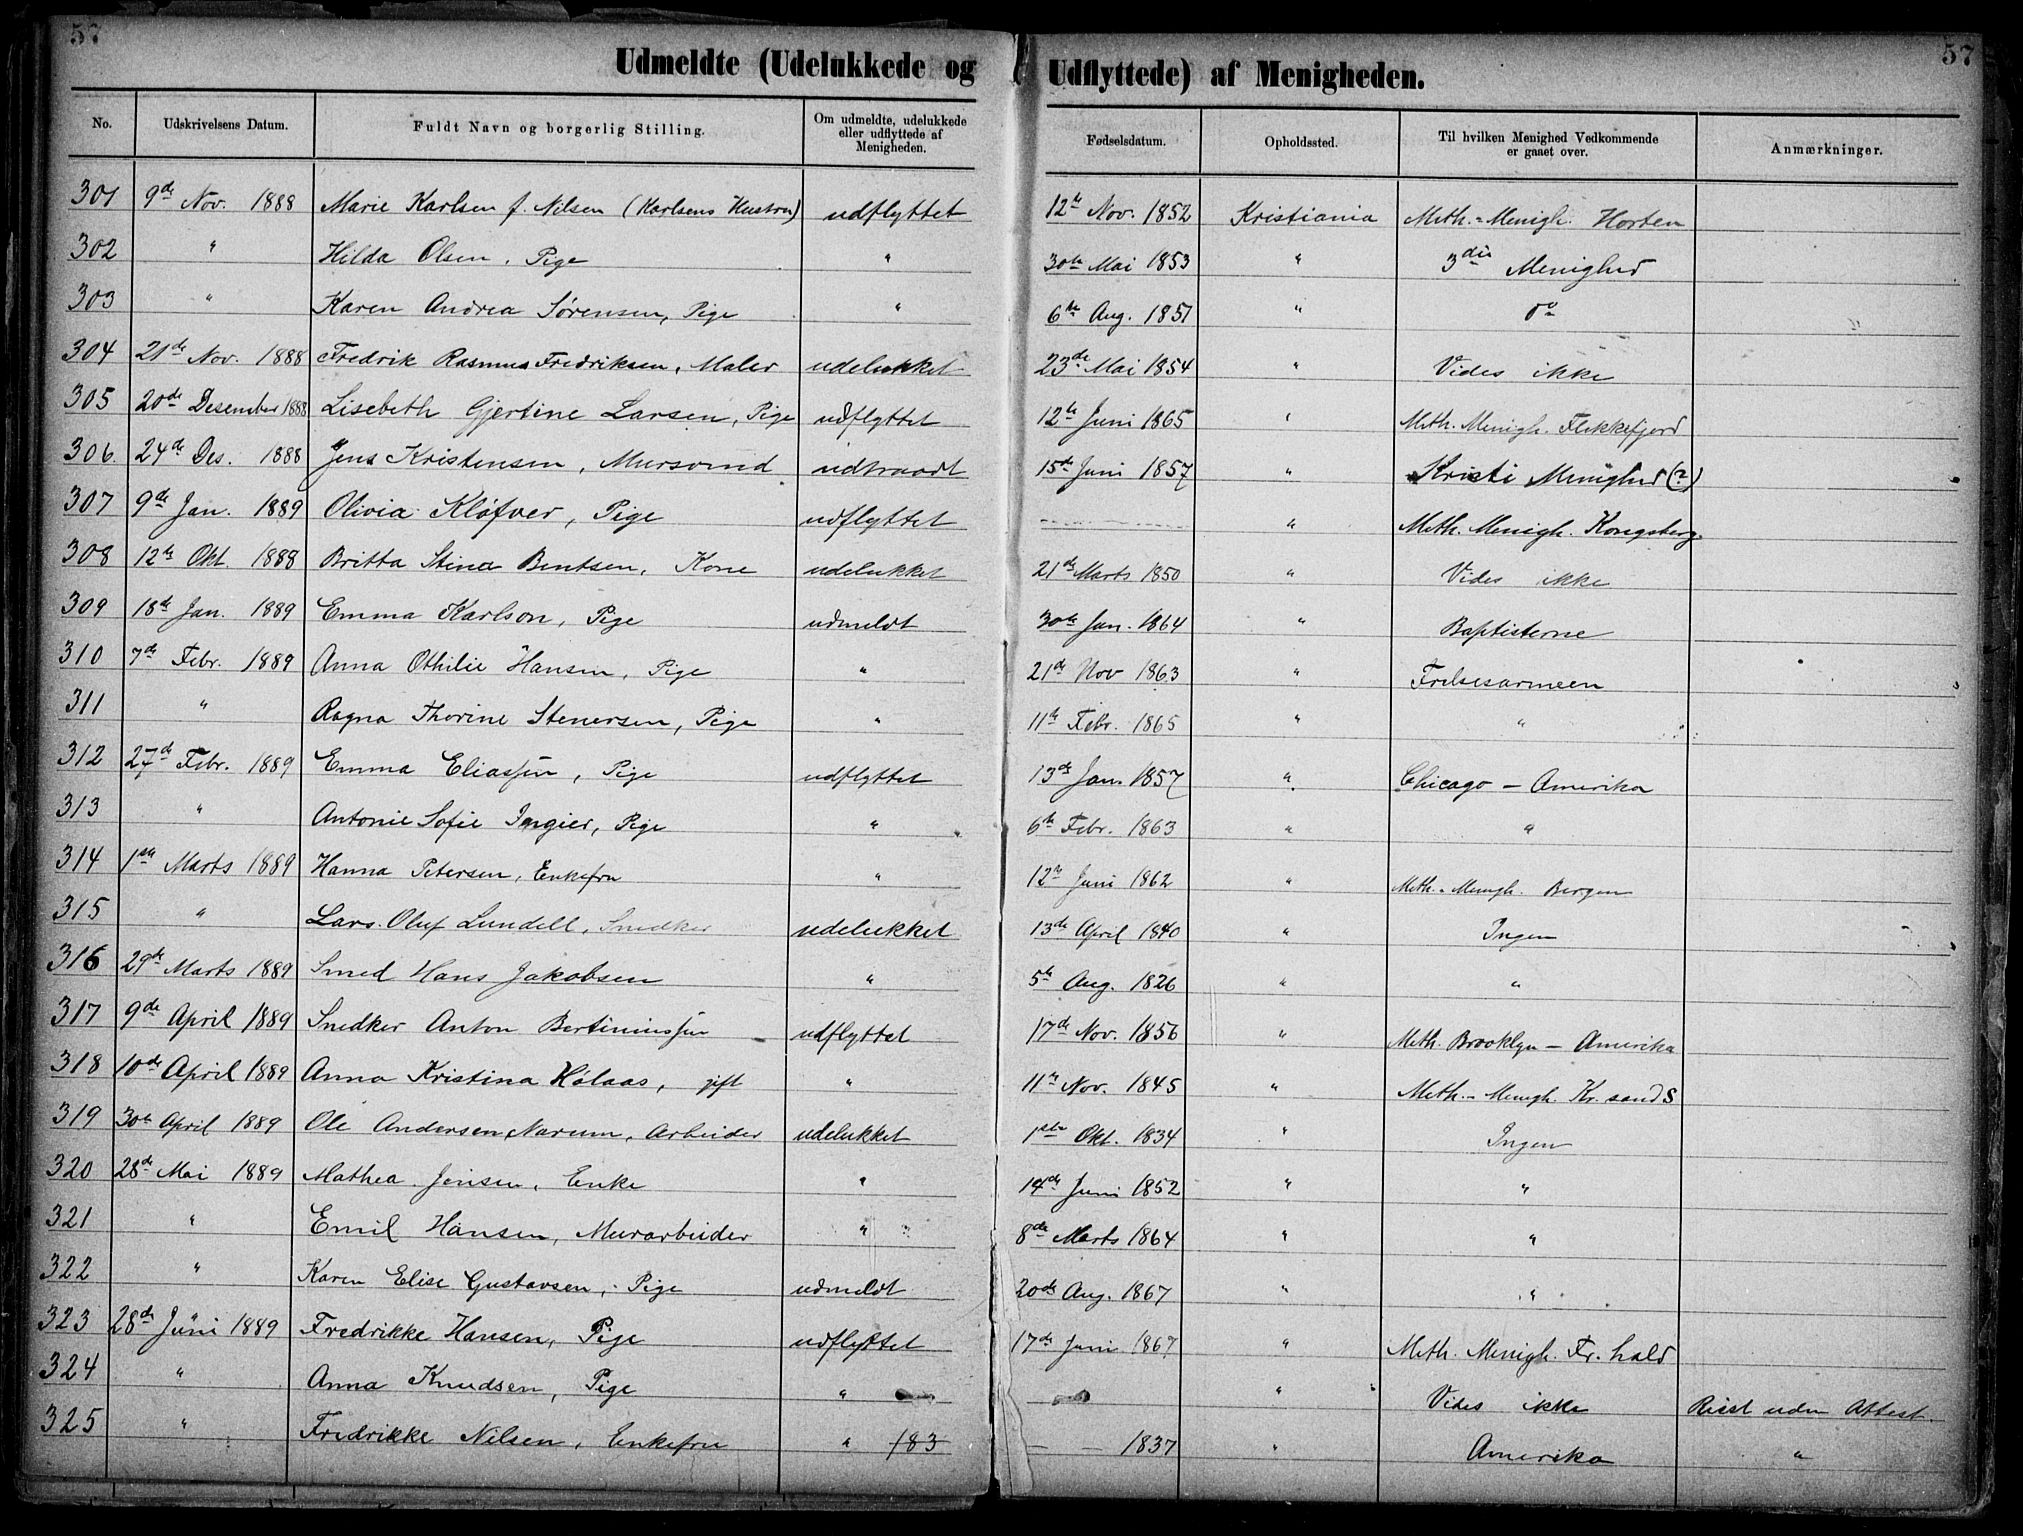 57
57
Udmeldte (Udelukkede og Udflyttede) af Menigheden.
No. Udskrivelsens Datum. Fuldt Navn og borgerlig Stilling. Om udmeldte, udelukkede eller udflyttede af Menigheden. Fødselsdatum. Opholdssted. Til hvilken Menighed Vedkommende er gaaet over. Anmærkninger.
301 9de Nov. 1888 Marie Karlsen f. Nilsen (Karlsens Hustru) udflyttet 12te Nov. 1852 Kristiania Meth.-Menigh. Horten
302 " Hilda Olsen, Pige " 30te Mai 1853 " 3die Menighed
303 " Karen Andrea Sørensen, Pige " 6te Aug. 1851 " do
304 21de Nov. 1888 Fredrik Rasmus Fredriksen, Maler udelukket 23de Mai 1854 " Vides ikke
305 20de Desember 1888 Lisebeth Gjertine Larsen, Pige udflyttet 12te Juni 1865 " Meth. Menigh. Flekkefjord
306. 24de Des. 1888 Jens Kristensen, Mursvend udtraadt 15de Juni 1857 " Kristi Menighed (?)
307 9de Jan. 1889 Olivia Kløfver, Pige udflyttet " Meth. Menigh. Kongsberg.
308 12te Okt. 1888 Britta Stina Bentsen, Kone udelukket 21de Marts 1850 " Vides ikke
309 18de Jan. 1889 Emma Karlson, Pige udmeldt 30te Jan. 1864 " Baptisterne
310 7de Febr. 1889 Anna Othilie Hansen, Pige " 21de Nov 1863 " Frelsesarmeen
311 " Ragna Thorine Stenersen, Pige " 11te Febr. 1865 " "
312 27de Febr. 1889 Emma Eliassen, Pige udflyttet 13de Jan. 1857 " Chicago – Amerika
313 " Antonie Sofie Ingier, Pige " 6te Febr. 1863 " "
314 1ste Marts 1889 Hanna Petersen, Enkefru " 12te Juni 1862 " Meth.-Menigh. Bergen
315 " Lars Oluf Lundell, Snedker udelukket 13de April 1840 " Ingen
316 29de Marts 1889 Smed Hans Jakobsen " 5te Aug. 1826 " "
317 9de April 1889 Snedker Anton Bertiniussen udflyttet 17de Nov. 1856 " Meth. Brooklyn – Amerika
318 10de April 1889 Anna Kristina Hólaas, gift " 11te Nov. 1845 " Meth.-Menigh. Kr. sand S
319 30te April 1889 Ole Andersen Narum, Arbeider udelukket 1ste Okt. 1834 " Ingen
320 28de Mai 1889 Mathea Jensen, Enke " 14de Juni 1852 " "
321 " Emil Hansen, Murarbeider " 8de Marts 1864 " "
322 " Karen Elise Gustavsen, Pige udmeldt 20de Aug. 1867 " "
323 28de Juni 1889 Fredrikke Hansen, Pige udflyttet 17de Juni 1867 " Meth. Menigh. Fr. hald
324 " Anna Knudsen, Pige " " Vides ikke Reist uden Attest.
325 " Fredrikke Nilsen, Enkefru " 183 – – 1837 " Amerika "